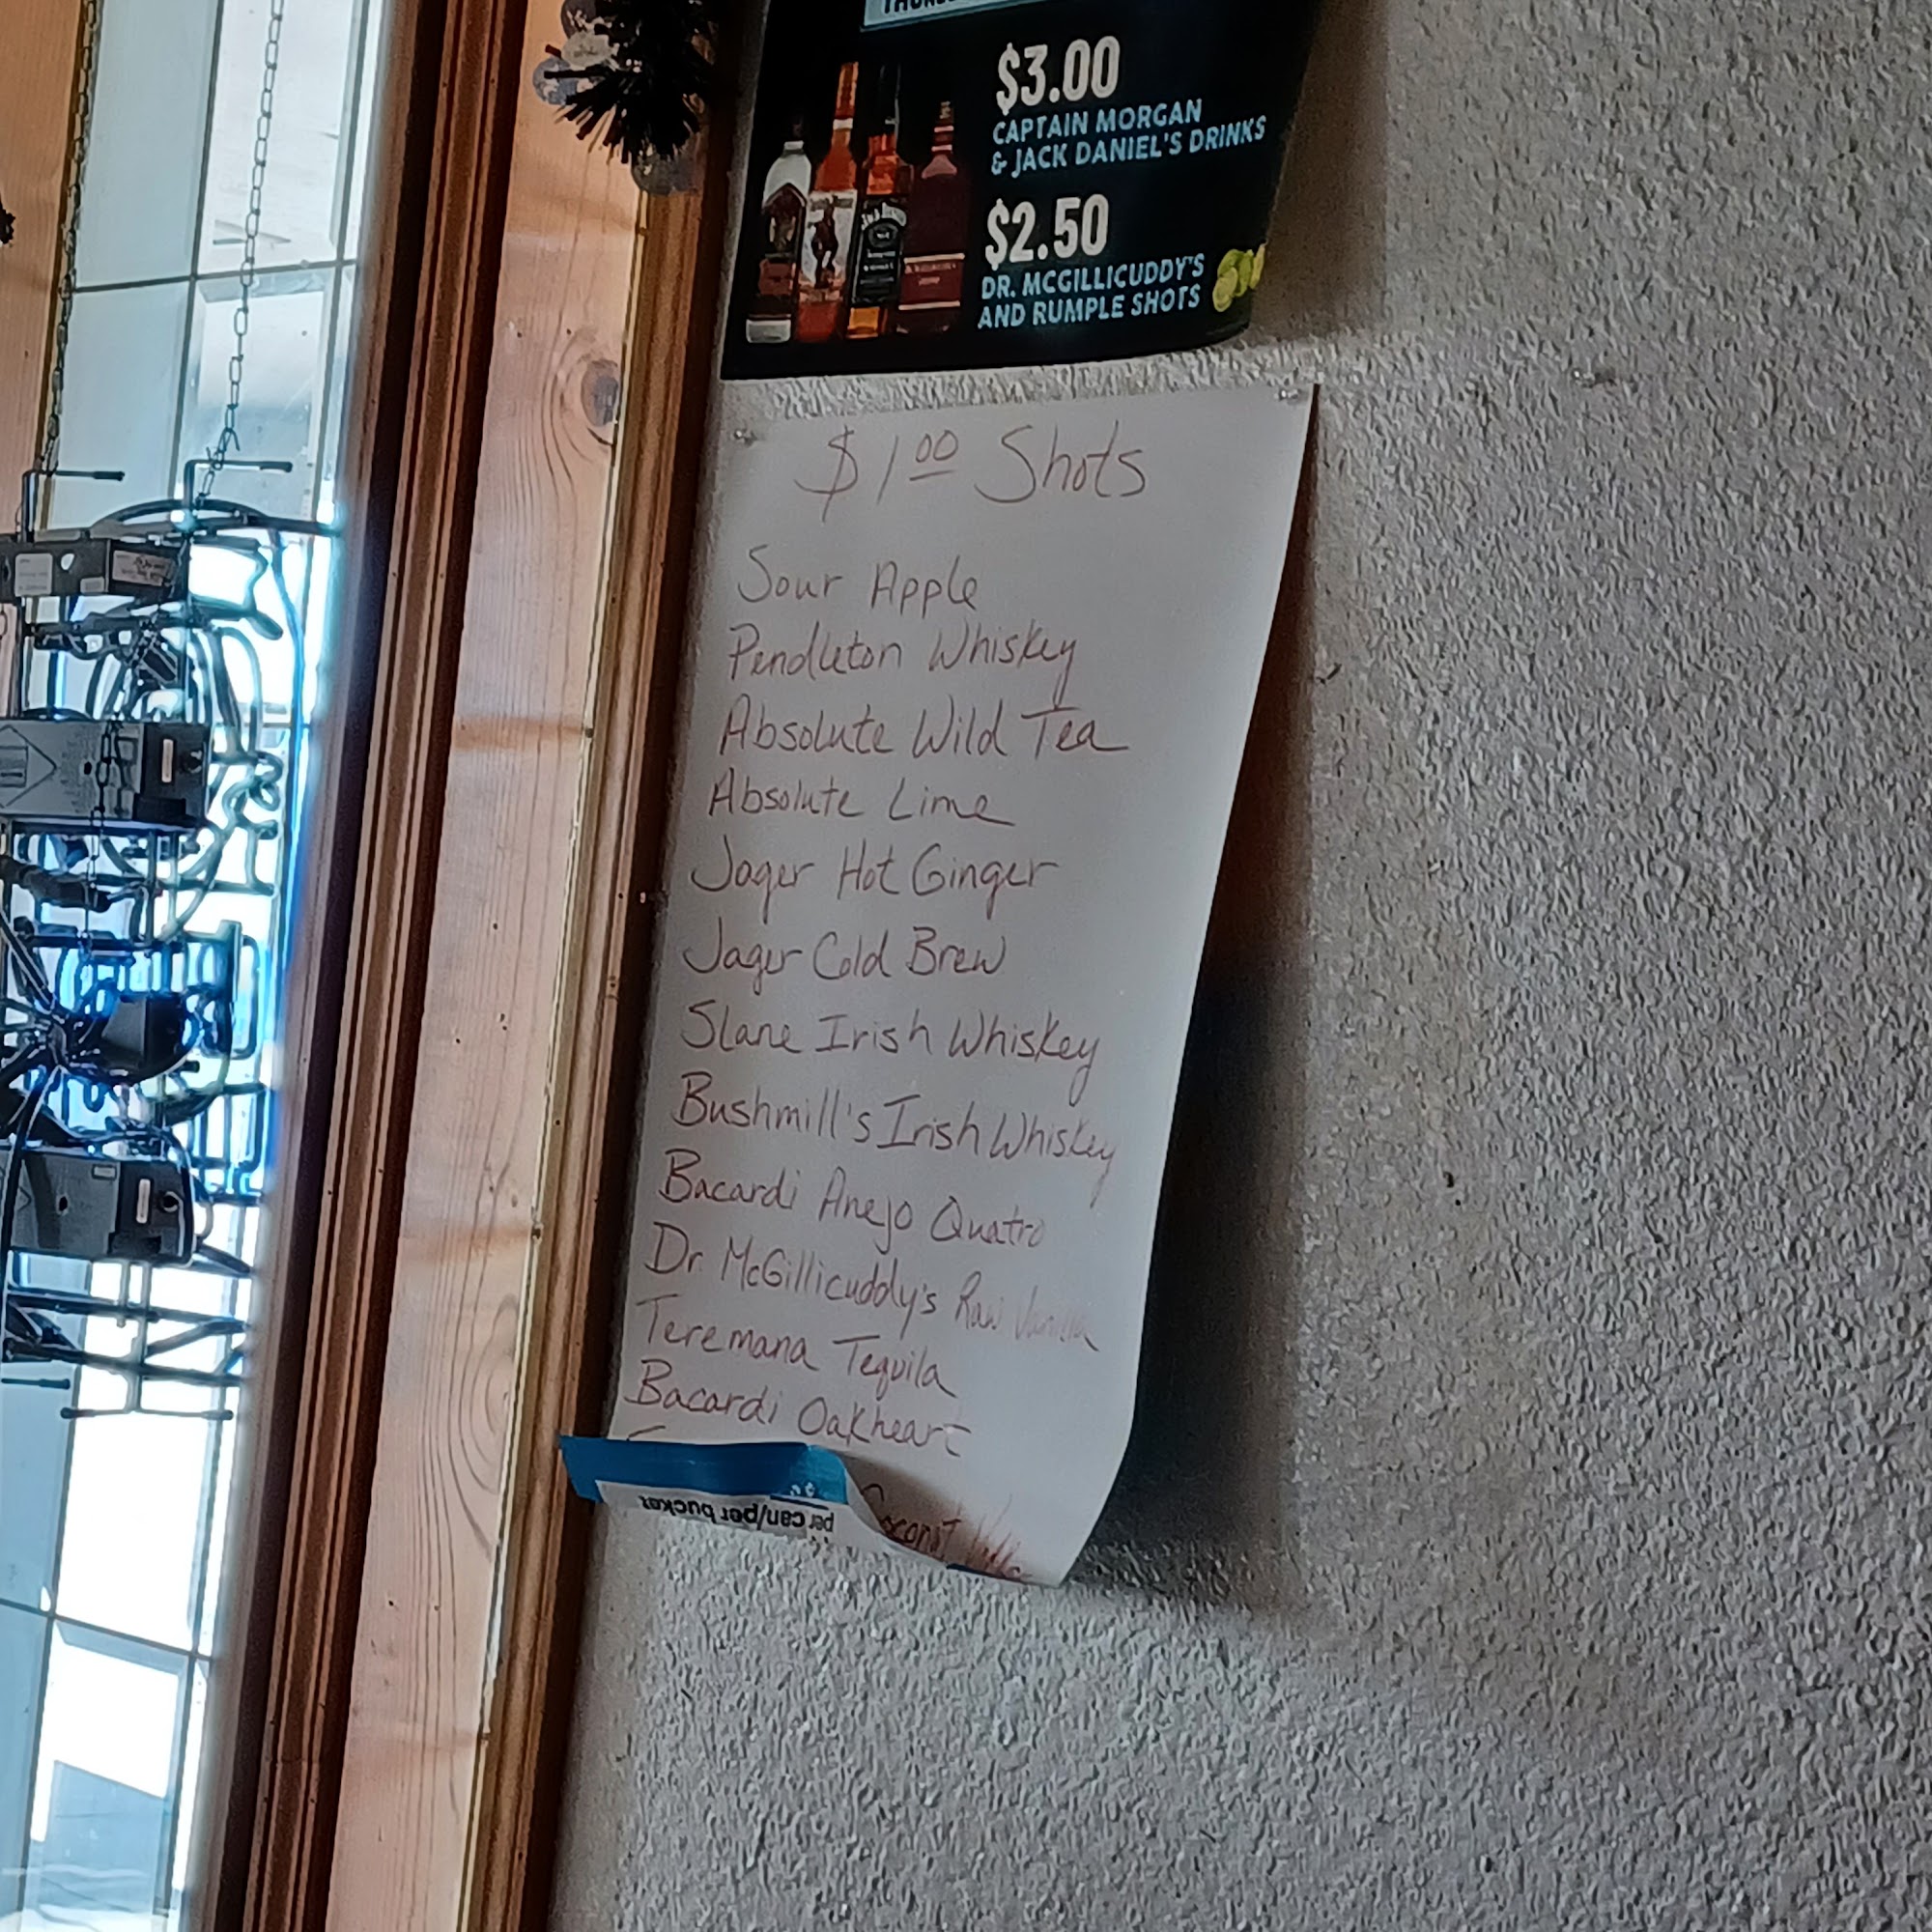 $3.00
CAPTAIN MORGAN
& JACK DANIEL'S DRINKS
$2.50
DR. MCGILLICUDDY'S
AND RUMPLE SHOTS
$1.00 Shots
Sour Apple
Pendleton Whiskey
Absolute Wild Tea
Absolute Lime
Jager Hot Ginger
Jager Cold Brew
Slane Irish Whiskey
Bushmill's Irish Whiskey
Bacardi Anejo Quatro
Dr McGillicuddy's Raw Vanilla
Teremana Tequila
Bacardi Oakheart
per can/per bucket